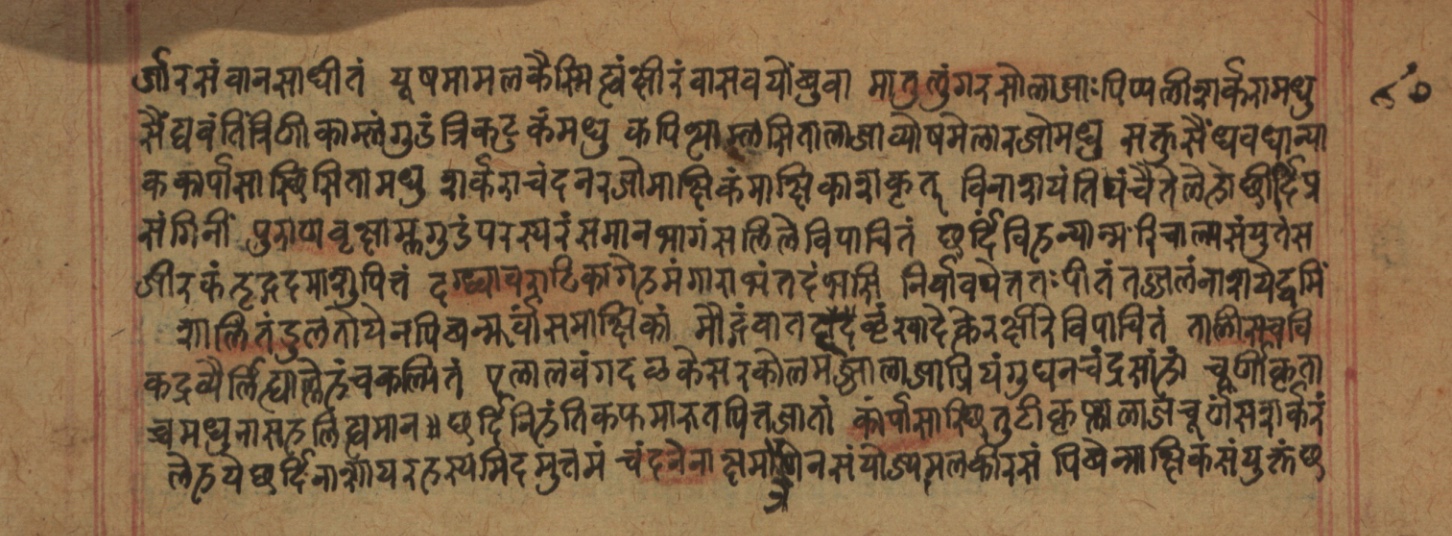 र्जारसंवानसाधीतं यूषमामलकैस्मिह्वंक्षीरंवासवयोंबुवा मातुलुंगरसोलाजाःपिप्पलीशर्करामधु
सैंधवंतिंत्रिणीकाम्लंगुडंत्रिकटुकंमधु कपित्थाम्लसितालाजाव्योषमेलारजोमधु सक्तुसैंधवधान्या
ककार्पासास्थिसितामधु शर्कराचंदनरजोमाक्षिकंमाक्षिकाशकृत् विनाशयंति चैतेलेहोछर्दिंप्र
संगिनीं पुराणवृक्षाम्लगुडंपरस्परंसमानभागंसलिलेविपाचितं छर्दिंविहन्यान्मरिचाल्पसंयुतंस
जीरकंहृद्गदमाशुपित्तं दग्ध्वावराटिकागेहमंगाराभंतदंभसि निर्वापयेत्ततःपीतंतज्जलंनाशयेद्वमिं
शालितंडुलतोयेनपिबेन्मूर्वांसमाक्षिकां मौद्गंवात खादेत्केरक्षीरेविपाचितं तालीस
कद्रव्यैर्लिह्याल्लेहंचकल्पितं एलालवंगदलकेसरकोलमज्जालाजाप्रियंगुघनचंद्र चूर्णीकृता
च्चमधुनासहलिह्यमान॥ छर्दिंनिहंतिकफमारुतपित्तजातां कार्पासास्थित्रुटीकृष्णालाजचूर्णंसशर्करं
लेहयेछर्दिनाशायरहस्यमिदमुत्तमं चंदनेनाक्षमात्रेणसंयोज्यामलकीरसं पिबेन्माक्षिकसंयुक्तंछ